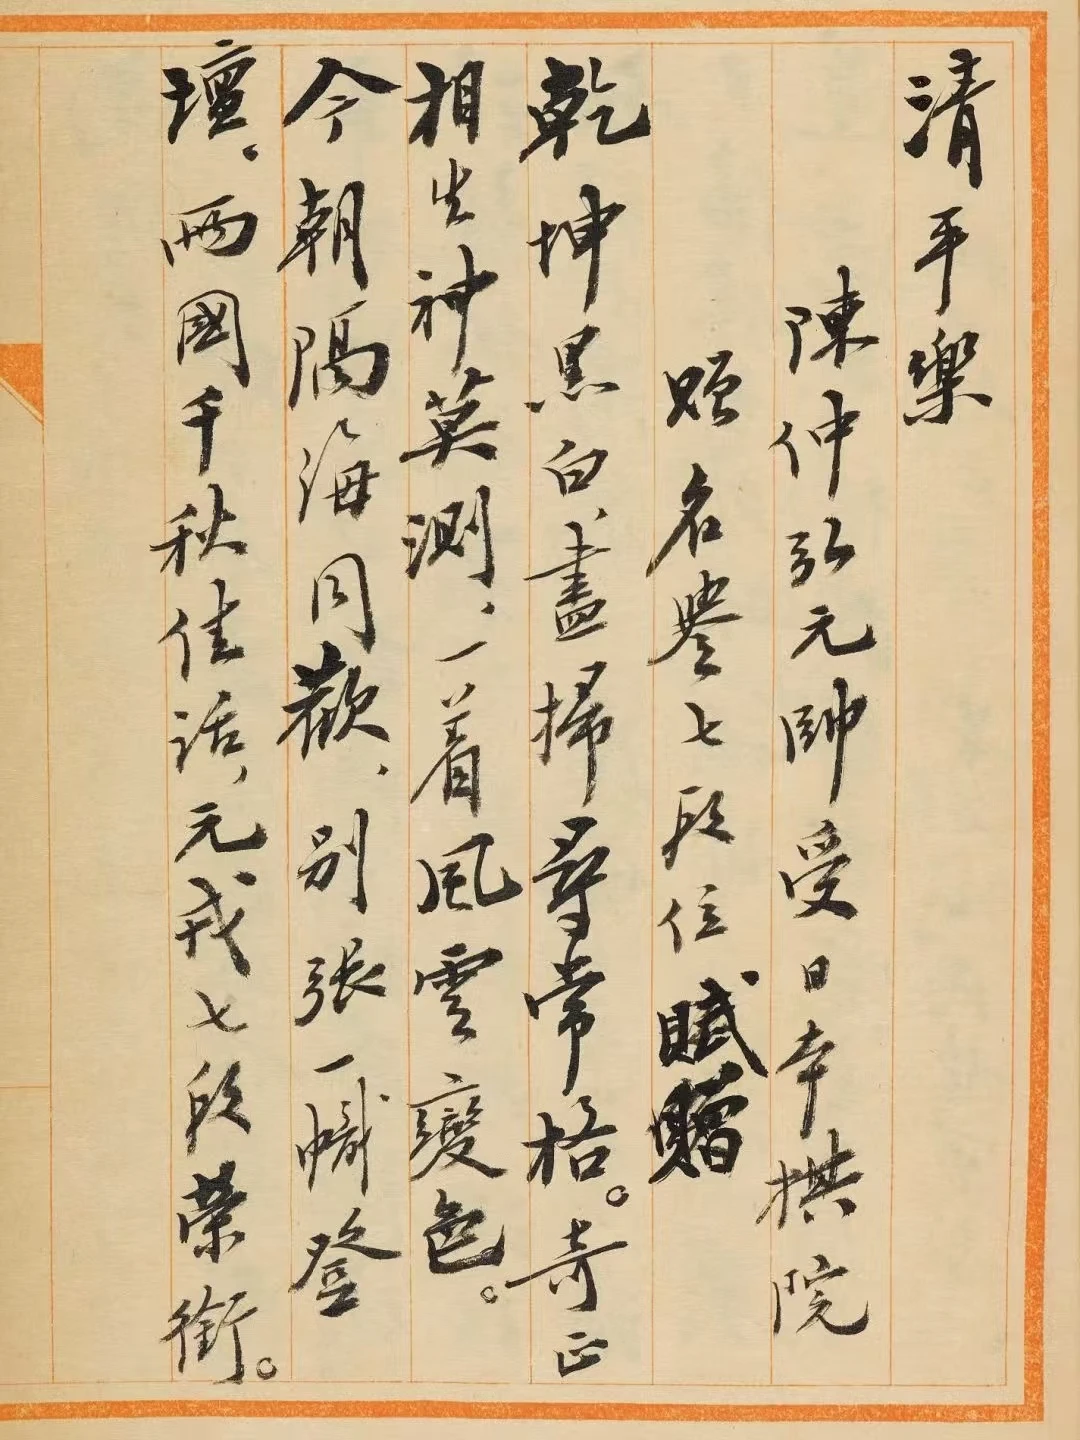 清平樂
陳仲弘元帥受日本棋院
贈名譽七段位賦贈
乾坤黑白、盡掃尋常格。奇正
相生神莫測、一着風雲變色。
今朝隔海同歡、別張一幟登
壇。兩國千秋佳話、元戎七段榮銜。